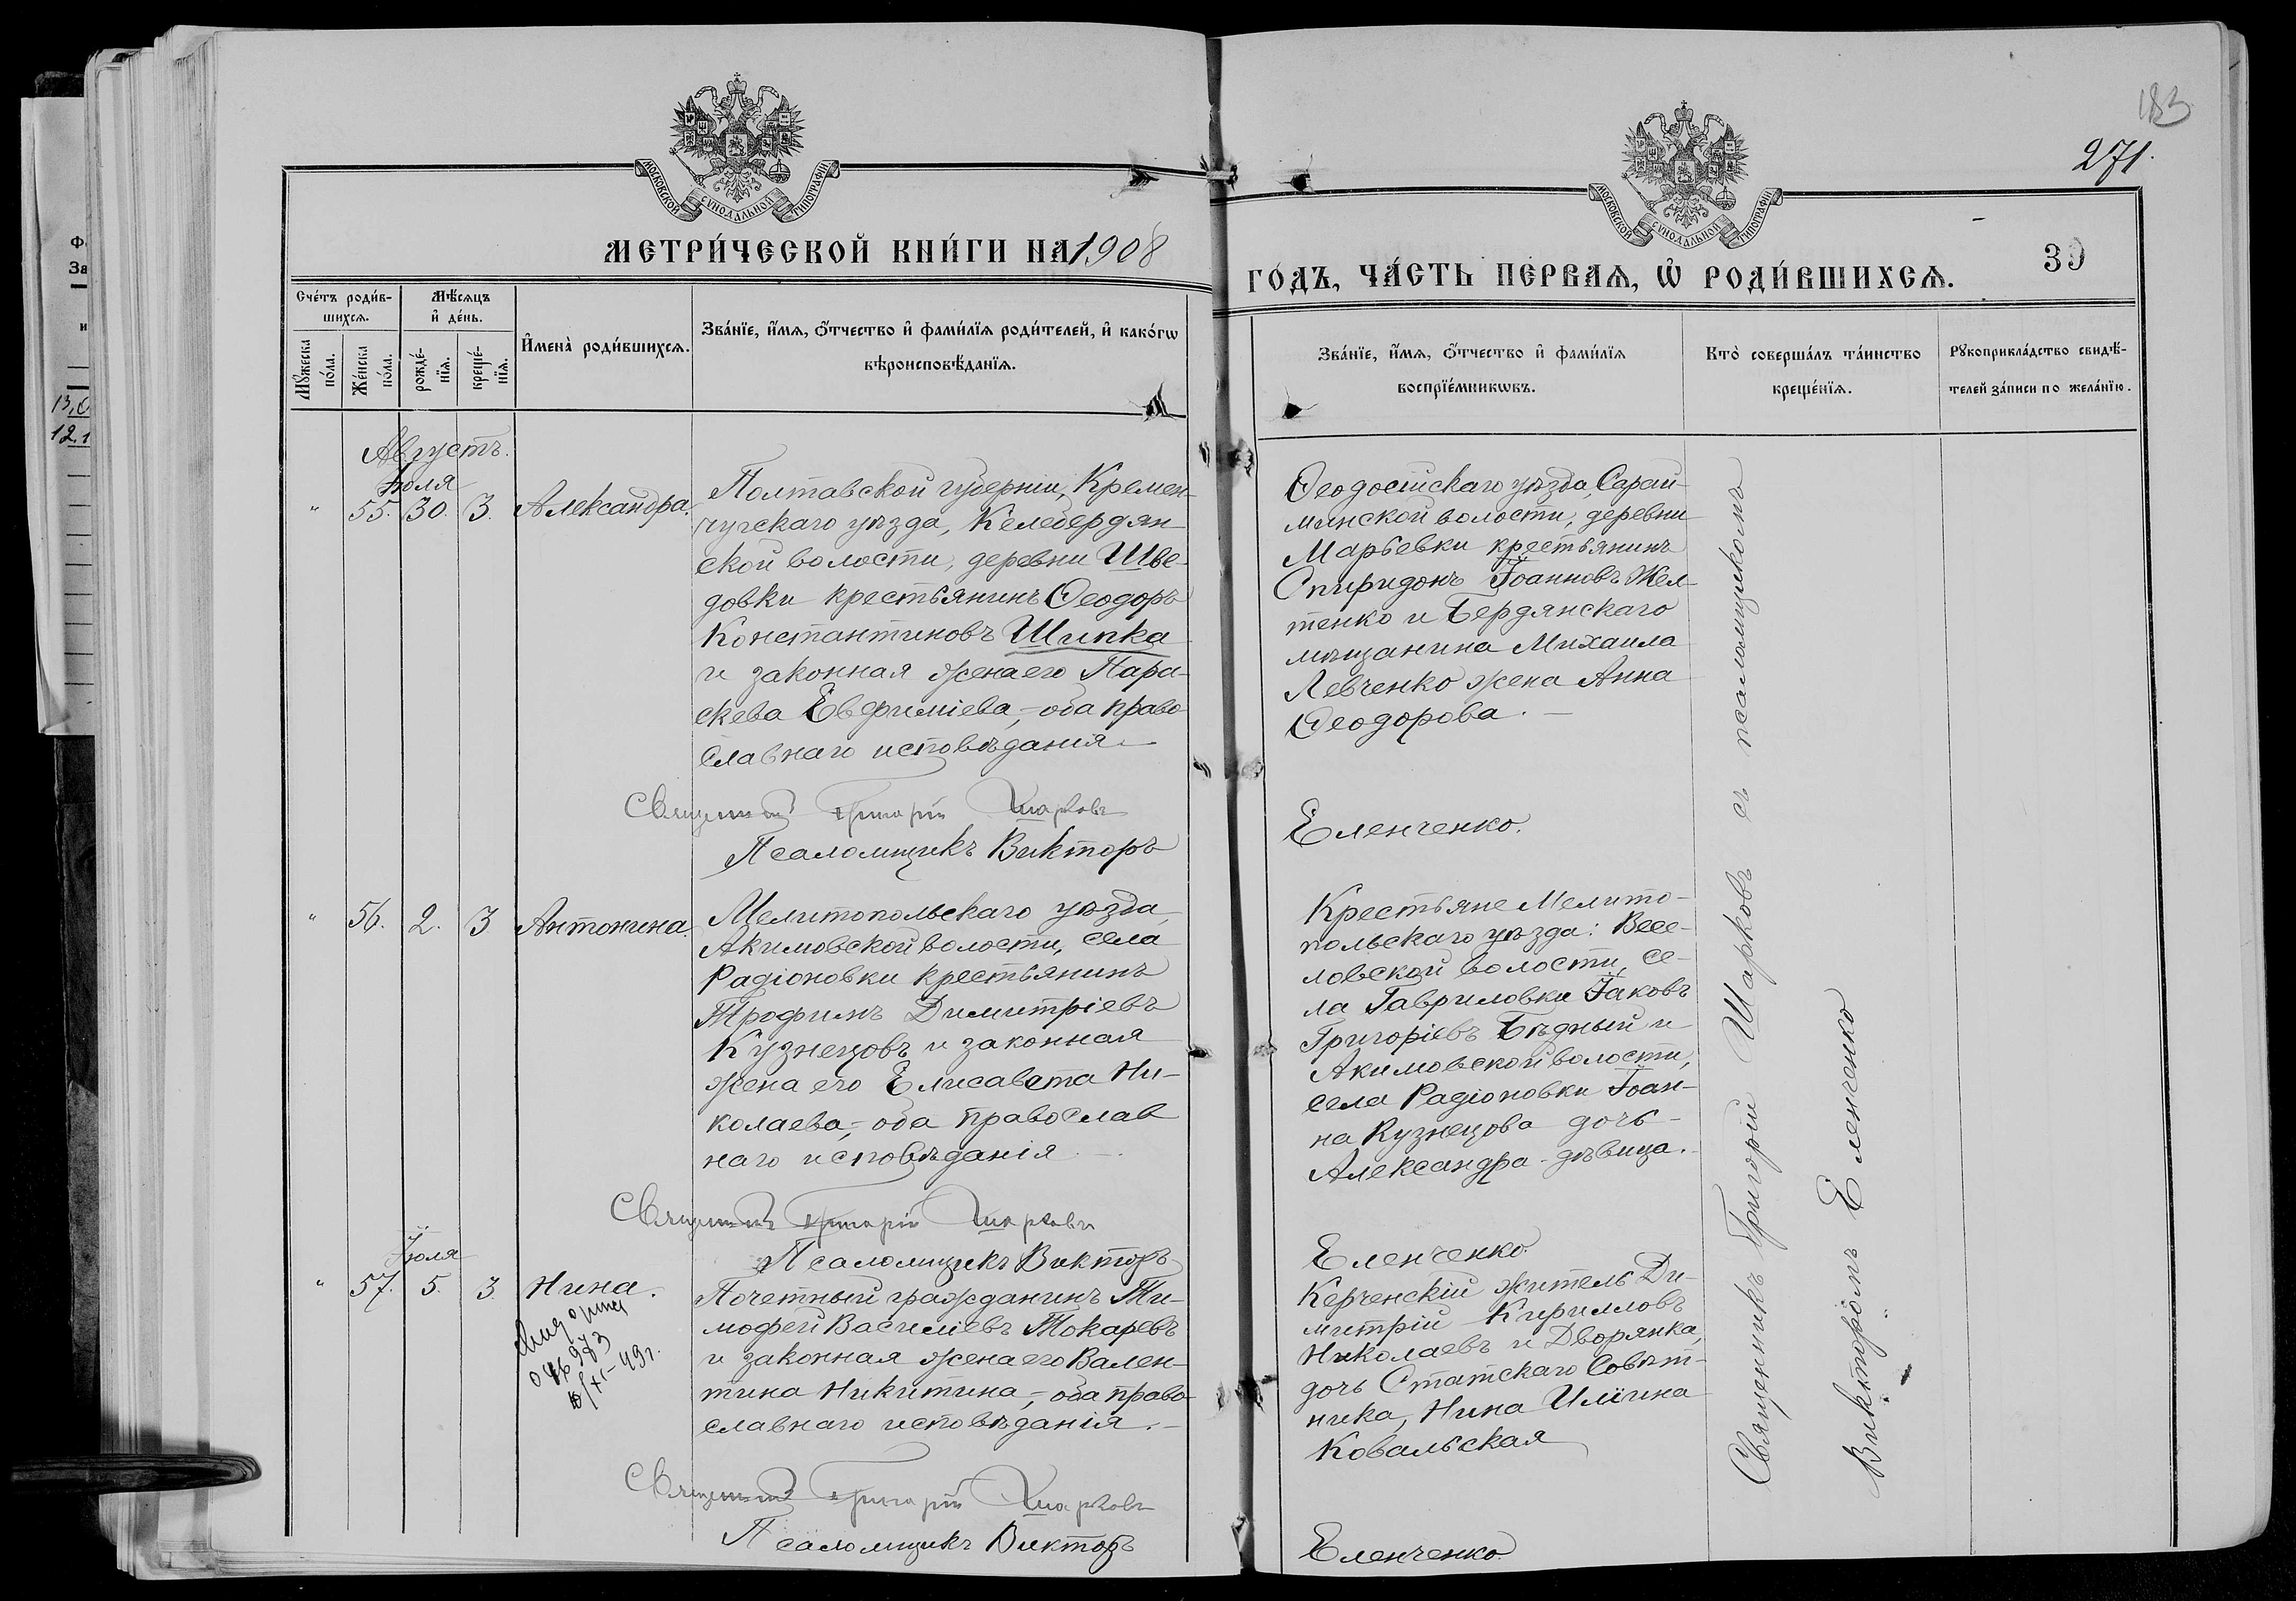 183
271.
МОСКОВСКОЙ СУНОДАЛЬНОЙ ТИПОГРАФІИ
МОСКОВСКОЙ СУНОДАЛЬНОЙ ТИПОГРАФІИ
МЕТРИ́ЧЕСКОЙ КНИ́ГИ НА 1908
ГО́ДЪ, ЧА́СТЬ ПЕ́РВАѦ, Ѽ РОДИ́ВШИХСѦ.
39
Сче́тъ роди́в-
шихсѧ.
Мѣ́сѧцъ
и҆ де́нь.
Мꙋ́жеска
по́ла.
Же́нска
по́ла.
рожде́-
нїѧ.
креще́-
нїѧ.
И҆мена̀ роди́вшихсѧ.
Зва́нїе, и҆́мѧ, ѻ҆́тчество и҆ фами́лїѧ роди́телей, и҆ како́гѡ
вѣроисповѣ́данїѧ.
Зва́нїе, и҆́мѧ, ѻ҆́тчество и҆ фами́лїѧ
воспрїе́мникѡвъ.
Кто̀ соверша́лъ та́инство
креще́нїѧ.
Рꙋкоприкла́дство свидѣ́-
телей за́писи по жела́нїю.
Августъ.
Іюля
" 55. 30. 3. Александра.
Полтавской губерніи, Кремен-
чугскаго уѣзда, Келебердян
ской волости, деревни Шве-
довки крестьянинъ Ѳеодоръ
Константиновъ Шипка
и законная жена его Пара-
скева Евфиміева,- оба право
славнаго исповѣданія
Священникъ Григорій Шарковъ
Псаломщикъ Викторъ
Ѳеодосійскаго уѣзда, Сарай-
минской волости, деревни
Марьевки крестьянинъ
Спиридонъ Іоанновъ Жел-
тенко и Бердянскаго
мѣщанина Михаила
Левченко жена Анна
Ѳеодорова.
Еленченко.
" 56. 2. 3 Антонина.
Мелитопольскаго уѣзда,
Акимовской волости, села
Радіоновки крестьянинъ
Трофимъ Димитріевъ
Кузнецовъ и законная
жена его Елисавета Ни-
колаева,- оба православ
наго исповѣданія
Священникъ Григорій Шарковъ
Псаломщикъ Викторъ
Крестьяне Мелито-
польскаго уѣзда: Весе-
ловской волости, се-
ла Гавриловки Іаковъ
Григоріевъ Бѣдный и
Акимовской волости,
села Радіоновки Іоан-
на Кузнецова дочь -
Александра - дѣвица.
Еленченко.
Іюля
" 57. 5. 3. Нина.
046973
XI-49г.
Почетный гражданинъ Ти-
мофей Василіевъ Токаревъ
и законная жена его Вален-
тина Никитина,- оба право
славнаго исповѣданія.
Священникъ Григорій Шарковъ
Псаломщикъ Викторъ
Керченскій житель Ди-
митрій Кирилловъ
Николаевъ и Дворянка,
дочь Статскаго Совѣт-
ника, Нина Иліина
Ковальская
Еленченко.
Священникъ Григорій Шарковъ съ псаломщикомъ
Викторомъ Еленченко